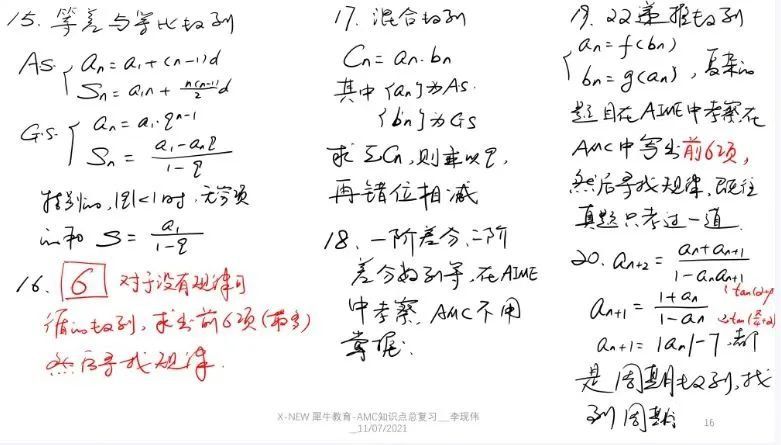 15. 等差与等比数列
A.S. { aₙ = a₁ + (n-1)d
Sₙ = a₁n + n(n-1)/2 d
G.S. { aₙ = a₁·qⁿ⁻¹
Sₙ = (a₁ - aₙq)/(1 - q)
特别的, |q|<1时, 无穷项
的和 S = a₁/(1 - q)
16. 6 对于没有规律可
循的数列, 求出前6项(最多)
然后寻找规律.
17. 混合数列
Cₙ = aₙ·bₙ
其中 {aₙ}为A.S.
{bₙ}为G.S
求ΣCₙ, 则乘以q,
再错位相减
18. 一阶差分、二阶
差分数列等, 在AIME
中考察, AMC不用
掌握.
19. 22递推数列
{ aₙ = f(bₙ)
bₙ = g(aₙ), 复杂的
题目在AIME中考察在
AMC中写出前6项,
然后寻找规律, 既往
真题只考过一道
20. aₙ₊₂ = (aₙ + aₙ₊₁)/(1 - aₙaₙ₊₁)
aₙ₊₁ = (1 + aₙ)/(1 - aₙ)
aₙ₊₁ = |aₙ| - 7, 都
是周期数列, 找
到周期
X-NEW 犀牛教育-AMC知识点总复习__李现伟
_11/07/2021
16